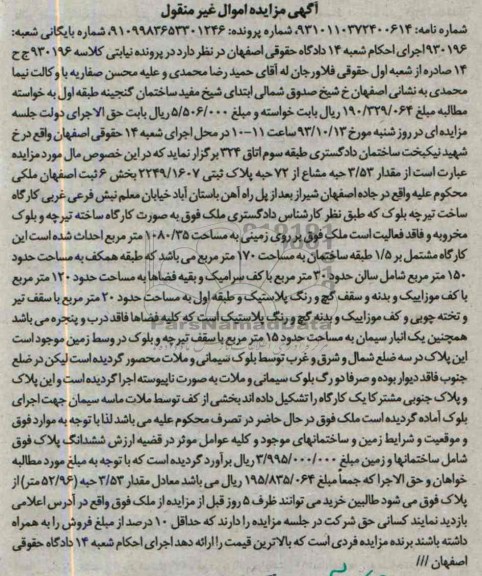 آگهی مزایده اموال غیر منقول
شماره نامه: ۹۳۱۰۱۱۰۳۷۲۴۰۰۶۱۴، شماره پرونده: ۹۱۰۹۹۸۳۶۵۳۳۰۱۲۴۶، شماره بایگانی شعبه:
۹۳۰۱۹۶ اجرای احکام شعبه ۱۴ دادگاه حقوقی اصفهان در نظر دارد در پرونده نیابتی کلاسه ۹۳۰۱۹۶ ج ح
۱۴ صادره از شعبه اول حقوقی فلاورجان له آقای حمید رضا محمدی و علیه محسن صفاریه با وکالت نیما
محمدی به نشانی اصفهان خ شیخ صدوق شمالی ابتدای شیخ مفید ساختمان گنجینه طبقه اول به خواسته
مطالبه مبلغ ۱۹۰/۳۲۹/۰۶۴ ریال بابت خواسته و مبلغ ۵/۵۰۶/۰۰۰ ریال بابت حق الاجرای دولت جلسه
مزایده ای در روز شنبه مورخ ۹۳/۱۰/۱۳ ساعت ۱۱-۱۰ در محل اجرای شعبه ۱۴ حقوقی اصفهان واقع در خ
شهید نیکبخت ساختمان دادگستری طبقه سوم اتاق ۳۲۴ برگزار نماید که در این خصوص مال مورد مزایده
عبارت است از مقدار ۳/۵۳ حبه مشاع از ۷۲ حبه پلاک ثبتی ۲۲۴۹/۱۶۰۷ بخش ۶ ثبت اصفهان ملکی
محکوم علیه واقع در جاده اصفهان شیراز بعد از پل راه آهن باستان آباد خیابان معلم نبش فرعی غربی کارگاه
ساخت تیرچه بلوک که طبق نظر کارشناس دادگستری ملک فوق به صورت کارگاه ساخته تیرچه و بلوک
مخروبه و فاقد فعالیت است ملک فوق بر روی زمینی به مساحت ۱۰۸۰/۳۵ متر مربع احداث شده است این
کارگاه مشتمل بر ۱/۵ طبقه ساختمان به مساحت ۱۷۰ متر مربع می باشد که طبقه همکف به مساحت حدود
۱۵۰ متر مربع شامل سالن حدود ۳۰ متر مربع با کف سرامیک و بقیه فضاها به مساحت حدود ۱۲۰ متر مربع
با کف موزاییک و بدنه و سقف گچ و رنگ پلاستیک و طبقه اول به مساحت حدود ۲۰ متر مربع با سقف تیر
و تخته چوبی و کف موزاییک و بدنه گچ و رنگ پلاستیک است که کلیه فضاها فاقد درب و پنجره می باشد
همچنین یک انبار سیمان به مساحت حدود ۱۵ متر مربع با سقف تیرچه و بلوک در وسط زمین موجود است
این پلاک در سه ضلع شمال و شرق و غرب توسط بلوک سیمانی و ملات محصور گردیده است لیکن در ضلع
جنوب فاقد دیوار بوده و صرفا دو رگ بلوک سیمانی و ملات به صورت ناپیوسته اجرا گردیده است و این پلاک
و پلاک جنوبی مشترکا یک کارگاه را تشکیل داده اند بخشی از کف توسط ملات ماسه سیمان جهت اجرای
بلوک آماده گردیده است ملک فوق در حال حاضر در تصرف محکوم علیه می باشد لذا با توجه به موارد فوق
و موقعیت و شرایط زمین و ساختمانهای موجود و کلیه عوامل موثر در قضیه ارزش ششدانگ پلاک فوق
شامل ساختمانها و زمین مبلغ ۳/۹۹۵/۰۰۰/۰۰۰ ریال برآورد گردیده است که با توجه به مبلغ مورد مطالبه
خواهان و حق الاجرا که جمعا مبلغ ۱۹۵/۸۳۵/۰۶۴ ریال می باشد معادل مقدار ۳/۵۳ حبه (۵۲/۹۶ متر) از
پلاک فوق می شود طالبین خرید می توانند ظرف ۵ روز قبل از مزایده از ملک فوق واقع در آدرس اعلامی
بازدید نمایند کسانی حق شرکت در جلسه مزایده را دارند که حداقل ۱۰ درصد از مبلغ فروش را به همراه
داشته باشند برنده مزایده فردی است که بالاترین قیمت را ارائه دهد اجرای احکام شعبه ۱۴ دادگاه حقوقی
اصفهان ///
ParsNamadData